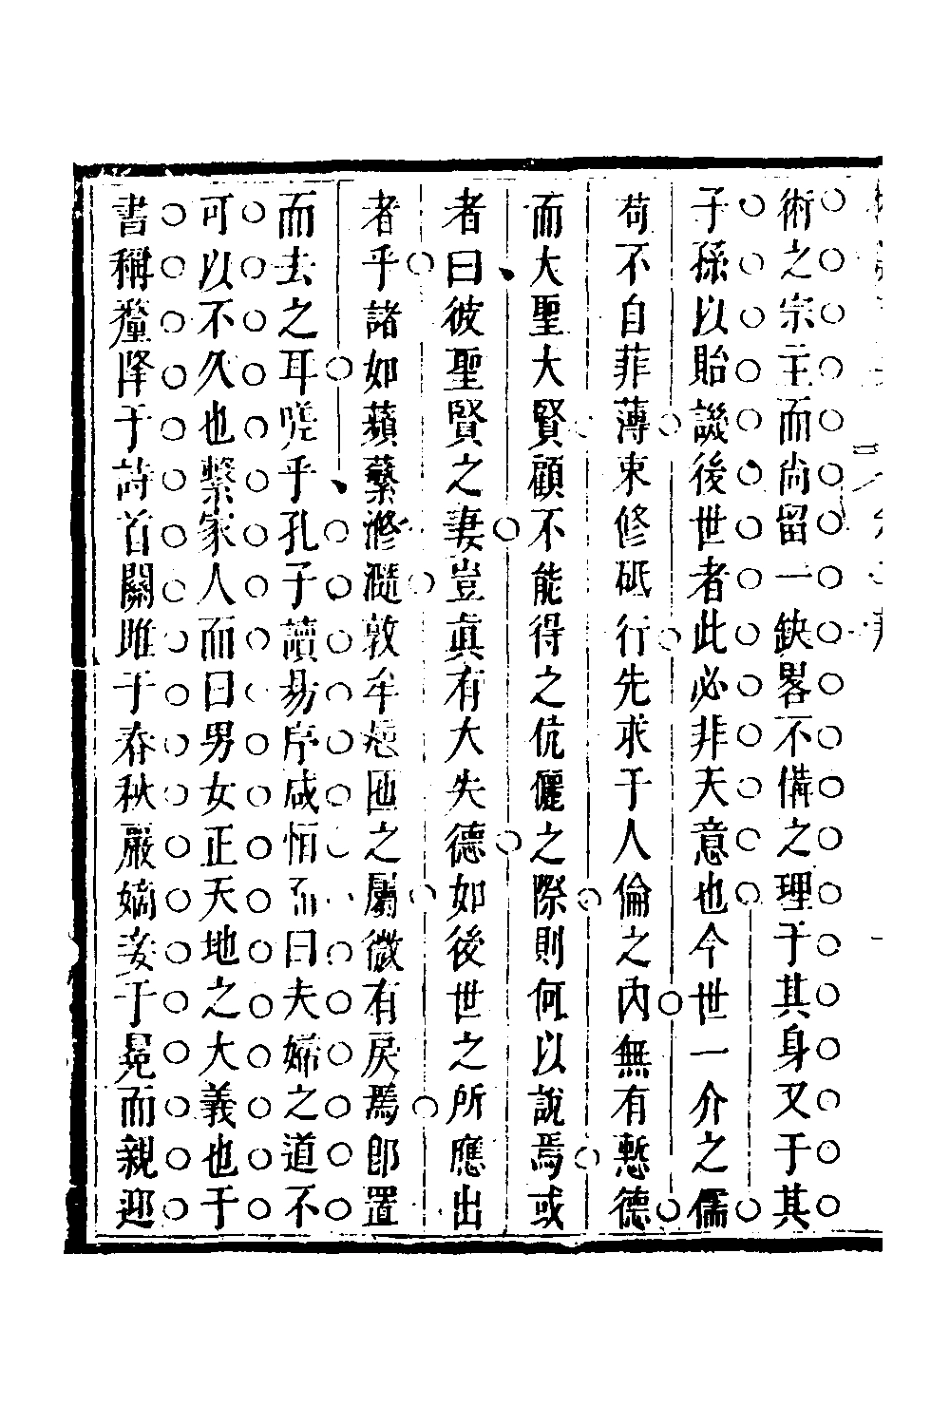 術之宗主而尚留一缺畧不備之理于其身又于其
子孫以貽譏後世者此必非天意也今世一介之儒
苟不自菲薄束修砥行先求于人倫之內無有慙德
而大聖大賢顧不能得之伉儷之際則何以說焉或
者曰彼聖賢之妻豈真有大失德如後世之所應出
者乎諸如蘋蘩滫瀡敦牟巵匜之屬微有戾焉郎置
而去之耳嗟乎孔子讀易序咸恒而曰夫婦之道不
可以不久也繫家人而曰男女正天地之大義也于
書稱釐降于詩首關雎于春秋嚴嫡妾于冕而親迎